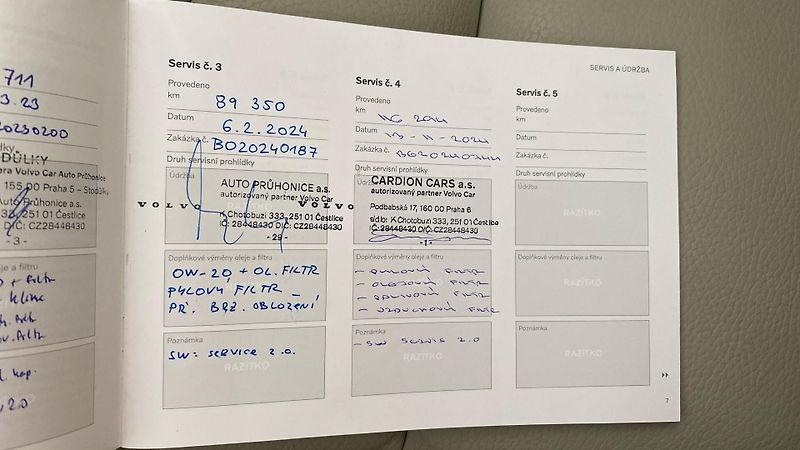 711
3.23
20230200
DŮLKY
era Volvo Car Auto Průhonice
155 00 Praha 5 – Stodůlky
333, 251 01 Čestlice
DIČ: CZ28448430
- 3 -
oleje a filtru
SERVIS A ÚDRŽBA
Servis č. 3
Provedeno
km 89 350
Datum 6.2.2024
Zakázka č. BO20240187
Druh servisní prohlídky
Údržba
AUTO PRŮHONICE a.s.
autorizovaný partner Volvo Car
VOLVO
K Chotobuzi 333, 251 01 Čestlice
IČ: 28448430 DIČ: CZ28448430
- 29 -
Doplňkové výměny oleje a filtru
OW-20 + OL. FILTR
PYLOVÝ FILTR
PŘ. BRZ. OBLOŽENÍ
Poznámka
SW: SERVICE 2.0.
RAZÍTKO
Servis č. 4
Provedeno
km
Datum 13-11-2024
Zakázka č.
Druh servisní prohlídky
Údržba
CARDION CARS a.s.
autorizovaný partner Volvo Car
VOLVO
Podbabská 17, 160 00 Praha 6
sídlo: K Chotobuzi 333, 251 01 Čestlice
IČ: 28448430 DIČ: CZ28448430
- 1 -
Doplňkové výměny oleje a filtru
- PYLOVÝ FILTR
- OLEJOVÝ FILTR
- PALIVOVÝ FILTR
- VZDUCHOVÝ FILTR
Poznámka
- SW SERVIS 2.0
RAZÍTKO
Servis č. 5
Provedeno
km
Datum
Zakázka č.
Druh servisní prohlídky
Údržba
RAZÍTKO
Doplňkové výměny oleje a filtru
RAZÍTKO
Poznámka
RAZÍTKO
7